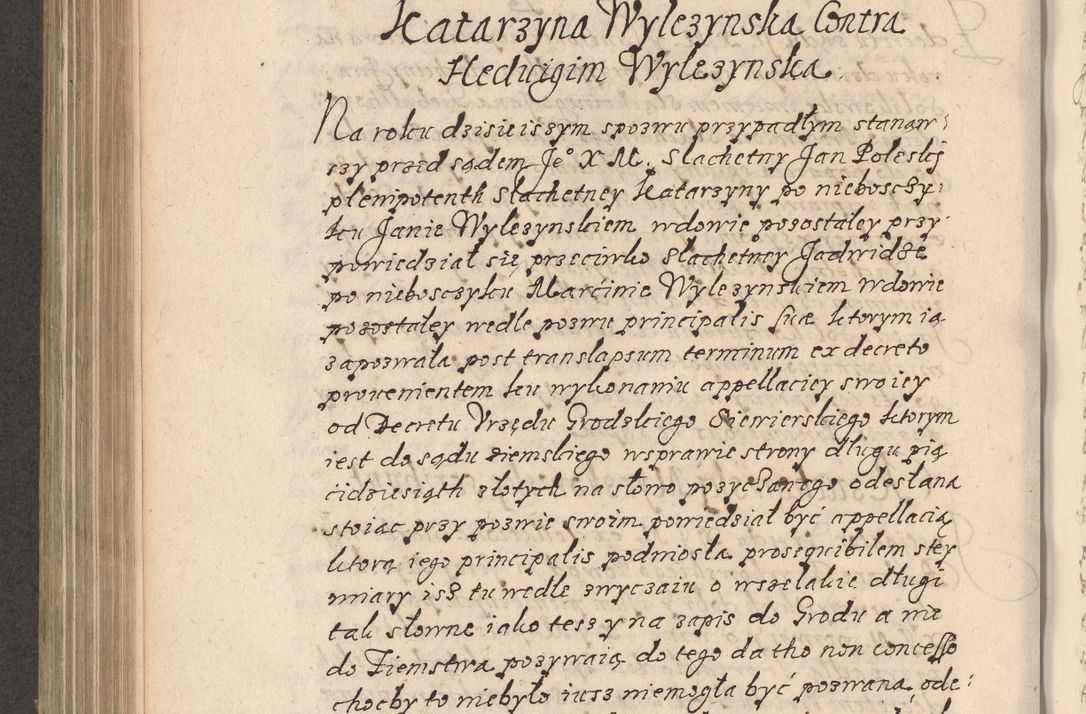 Katarzyna Wylezynska Contra
Hedwigim Wylezynska
Na roku dzisieiszym spozwu przypadłym stanaw
szy przed sądem Jeº X M. Slachetny Jan Poleski
plenipotenth Slachetney Katarzyny po niebosczy
ku Janie Wylezynskiem wdowie pozostałey przy
powiedział się przeciwko Slachetney Jadwidze
po niebosczyku Marcinie Wylezynskiem wdowie
pozostałey wedle pozwu principalis suæ ktorym ią
zapozwała post translapsum terminum ex decreto
prouenientem ku wykonaniu appellaciey swoiey
od Decretu Vrzędu Grodzkiego Siewierskiego ktorym
iest do sądu ziemskiego wsprawie strony długu pią
cidziesiąth złotych na słowo pozyczanego odesłana
stoiąc przy pozwie swoim powiedział być appellacią
ktorą iego principalis podniosła prosequibilem stey
miary isz tu wedle zwyczaiu o wszelakie długi
tak słowne iako tesz y na zapis do Grodu a nie
do Ziemstwa pozywaią do tego da tho non concesso
choćby to niebyło iusz niemogła być pozwana, ode